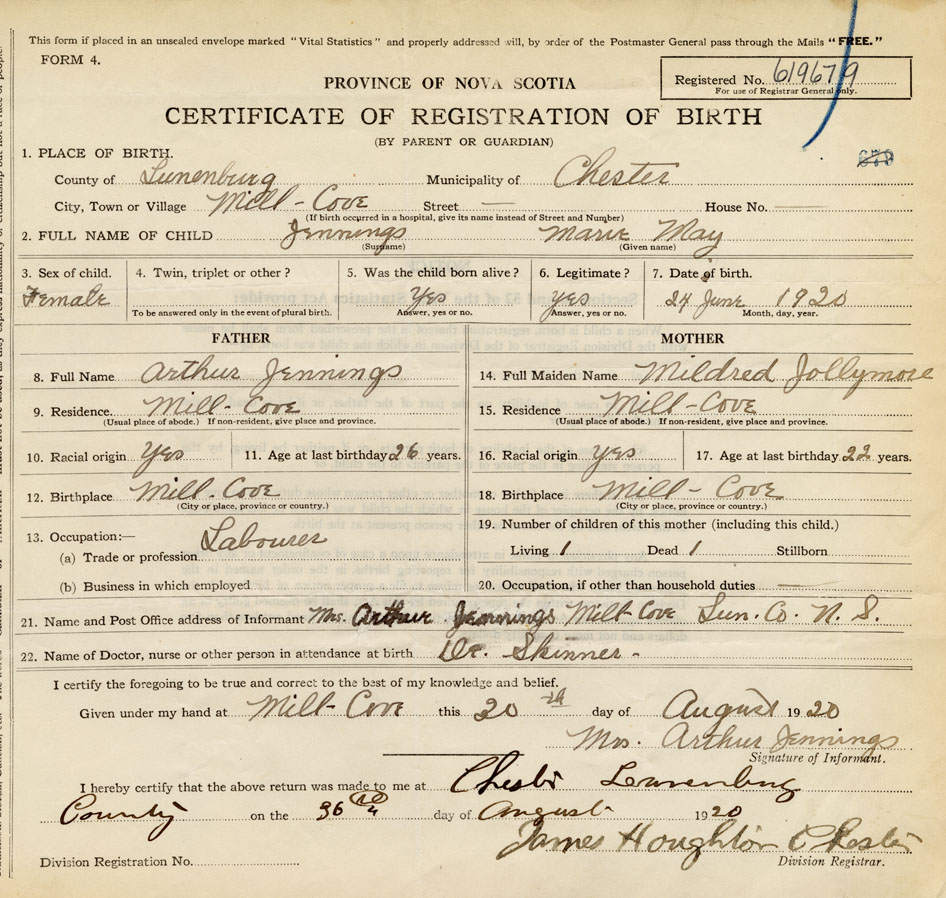 This form if placed in an unsealed envelope marked "Vital Statistics" and properly addressed will, by order of the Postmaster General pass through the Mails "FREE."
FORM 4.
Registered No. 619679
For use of Registrar General only.
PROVINCE OF NOVA SCOTIA
CERTIFICATE OF REGISTRATION OF BIRTH
(BY PARENT OR GUARDIAN)
679
1. PLACE OF BIRTH.
County of Lunenburg Municipality of Chester
City, Town or Village Mill-Cove Street — House No. —
(If birth occurred in a hospital, give its name instead of Street and Number)
2. FULL NAME OF CHILD Jennings Marie May
(Surname) (Given name)
3. Sex of child. 4. Twin, triplet or other? 5. Was the child born alive? 6. Legitimate? 7. Date of birth.
Female Yes Yes 24 June 1920
To be answered only in the event of plural birth. Answer, yes or no. Answer, yes or no. Month, day, year.
FATHER MOTHER
8. Full Name Arthur Jennings 14. Full Maiden Name Mildred Jollymore
9. Residence. Mill-Cove 15. Residence Mill-Cove
(Usual place of abode.) If non-resident, give place and province. (Usual place of abode.) If non-resident, give place and province.
10. Racial origin Yes 11. Age at last birthday 26 years. 16. Racial origin yes 17. Age at last birthday 22 years.
12. Birthplace Mill-Cove 18. Birthplace Mill-Cove
(City or place, province or country.) (City or place, province or country.)
13. Occupation:— Labourer 19. Number of children of this mother (including this child.)
(a) Trade or profession Living 1 Dead 1 Stillborn
(b) Business in which employed 20. Occupation, if other than household duties —
21. Name and Post Office address of Informant Mrs. Arthur Jennings Mill-Cove Lun. Co. N. S.
22. Name of Doctor, nurse or other person in attendance at birth Dr. Skinner -
I certify the foregoing to be true and correct to the best of my knowledge and belief.
Given under my hand at Mill-Cove this 20 th day of August 1920
Mrs. Arthur Jennings
Signature of Informant.
I hereby certify that the above return was made to me at Chester Lunenburg
County on the day of August 1920
James Houghton Chester
Division Registration No. Division Registrar.